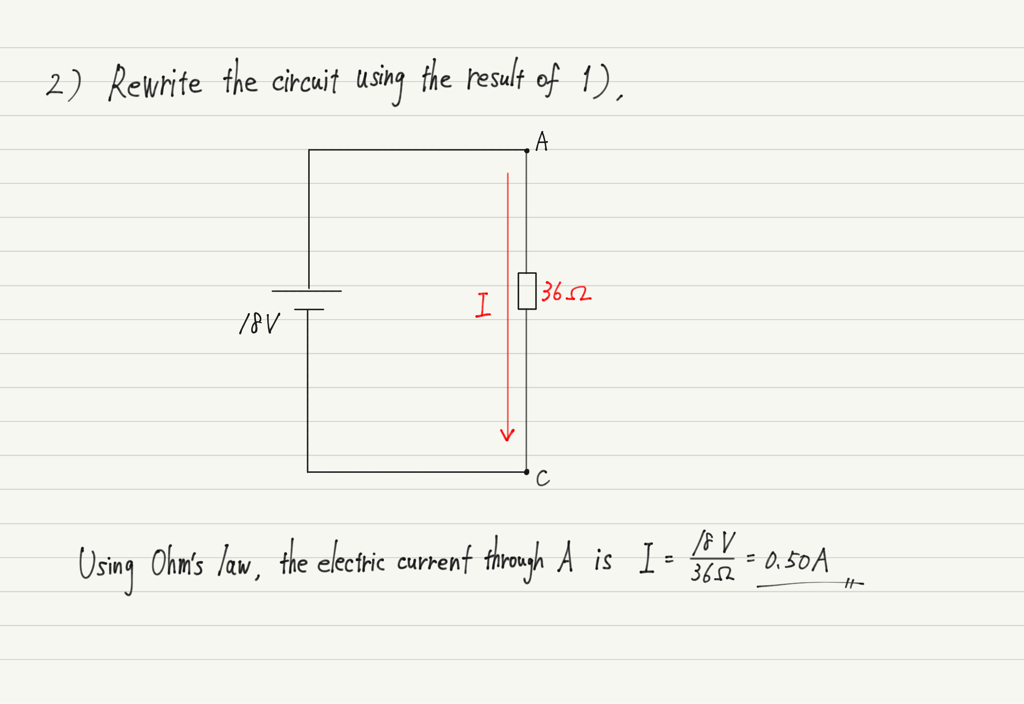 2) Rewrite the circuit using the result of 1).
A
I
36Ω
18V
C
Using Ohm's law, the electric current through A is I = 18V/36Ω = 0.50A